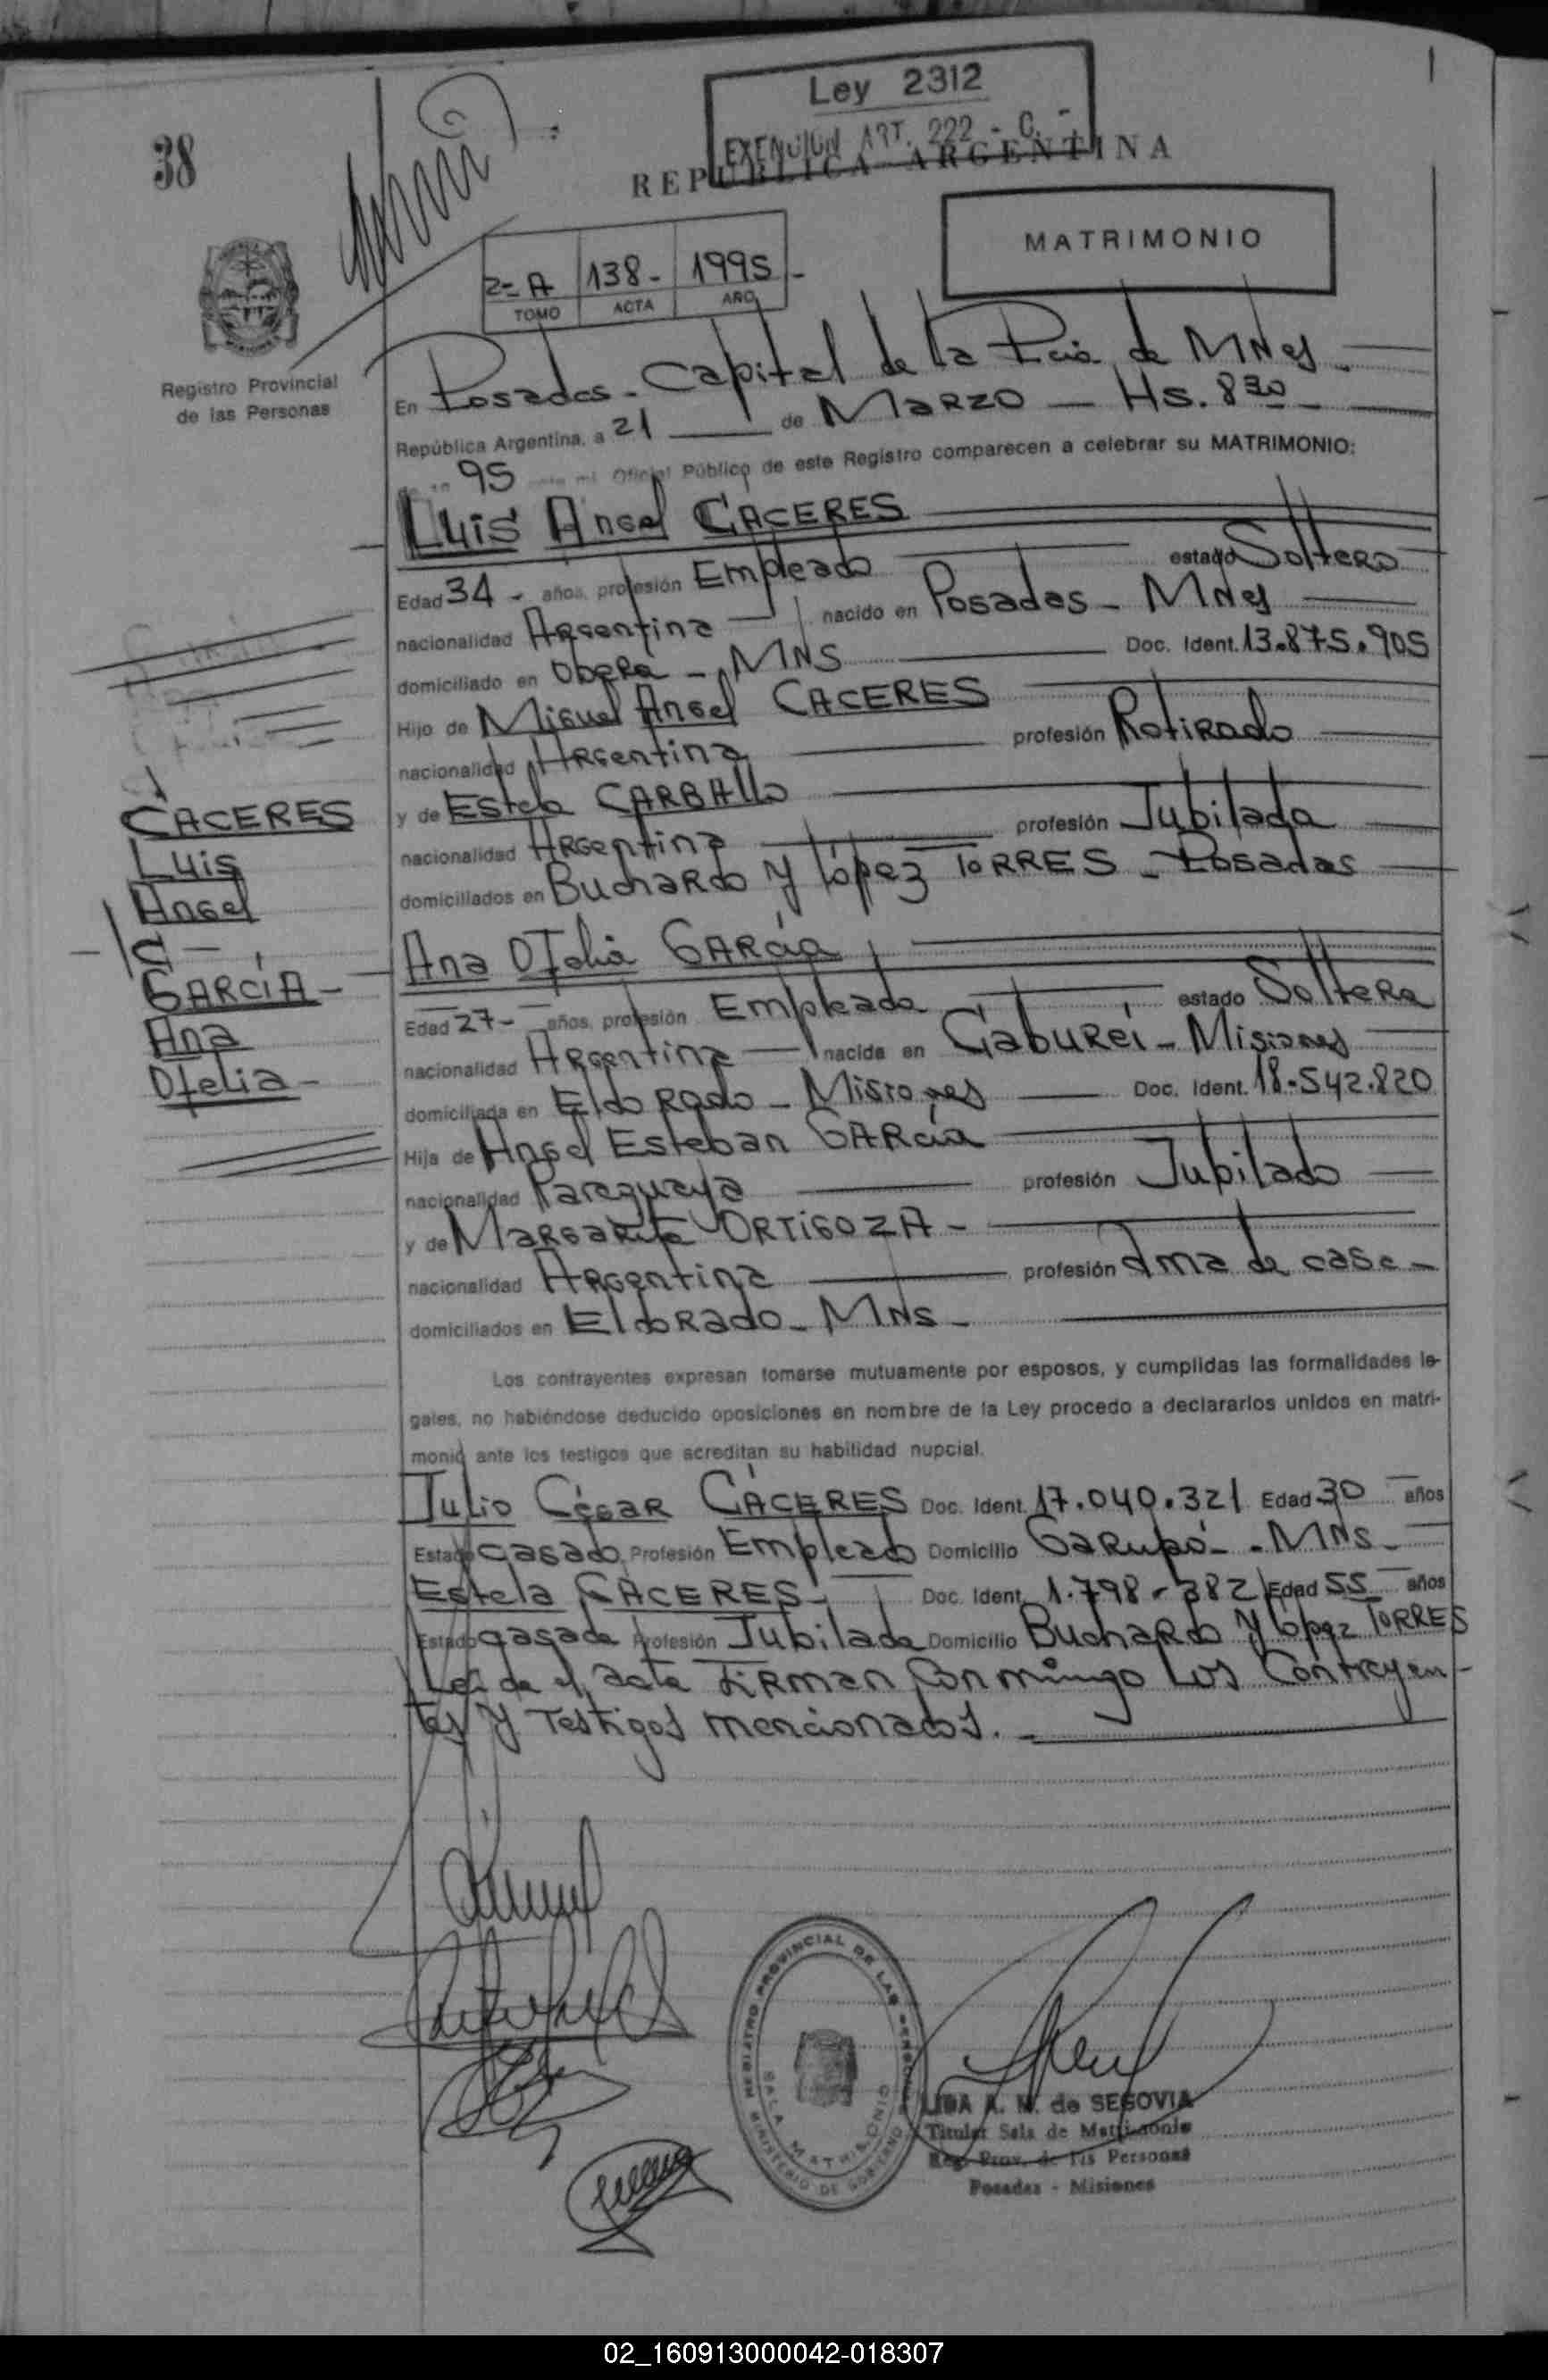 Ley 2312
EXENCION ART. 222 - C. -
REPUBLICA ARGENTINA
38
MATRIMONIO
2= A 138- 1995 -
TOMO ACTA AÑO
Registro Provincial
de las Personas
En Posadas - Capital de la Pcia de MNes
República Argentina, a 21 de MARZO - Hs. 830
95 ante mi Oficial Público de este Registro comparecen a celebrar su MATRIMONIO:
Luis Angel CACERES
Edad 34 - años, profesión Empleado estado Soltero
nacionalidad Argentina nacido en Posadas - MNes
domiciliado en Obera - MNS Doc. Ident. 13.875.905
Hijo de Miguel Angel CACERES
nacionalidad Argentina profesión Retirado
y de Estela CARBAllo
nacionalidad Argentina profesión Jubilada
domiciliados en Buchardo y López TORRES - Posadas
CÁCERES
Luis
Angel
C -
GARCÍA -
Ana
Ofelia -
Ana Ofelia GARCía
Edad 27 - años, profesión Empleada estado Soltera
nacionalidad Argentina nacida en Gaburei - Misiones
domiciliada en Eldorado - Misiones Doc. Ident. 18.542.820
Hija de Angel Esteban GARCía
nacionalidad Paraguaya profesión Jubilado
y de Margarita ORTIGOZA -
nacionalidad Argentina profesión Ama de casa -
domiciliados en Eldorado - MNS -
Los contrayentes expresan tomarse mutuamente por esposos, y cumplidas las formalidades le-
gales, no habiéndose deducido oposiciones en nombre de la Ley procedo a declararlos unidos en matri-
monio ante los testigos que acreditan su habilidad nupcial.
Julio César CÁCERES Doc. Ident. 17.040.321 Edad 30 años
Estado casado Profesión Empleado Domicilio Garupá - - MNS -
Estela CACERES - Doc. Ident. 1.798.382 Edad 55 años
Estado casada Profesión Jubilada Domicilio Buchardo y López TORRES
Leída el acta firman conmigo los contrayen-
tes y testigos mencionados. -
REGISTRO PROVINCIAL DE LAS PERSONAS
SALA MATRIMONIO
MINISTERIO DE GOBIERNO
LIDA A. M. de SEGOVIA
Titular Sala de Matrimonio
Reg. Prov. de las Personas
Posadas - Misiones
02_160913000042-018307